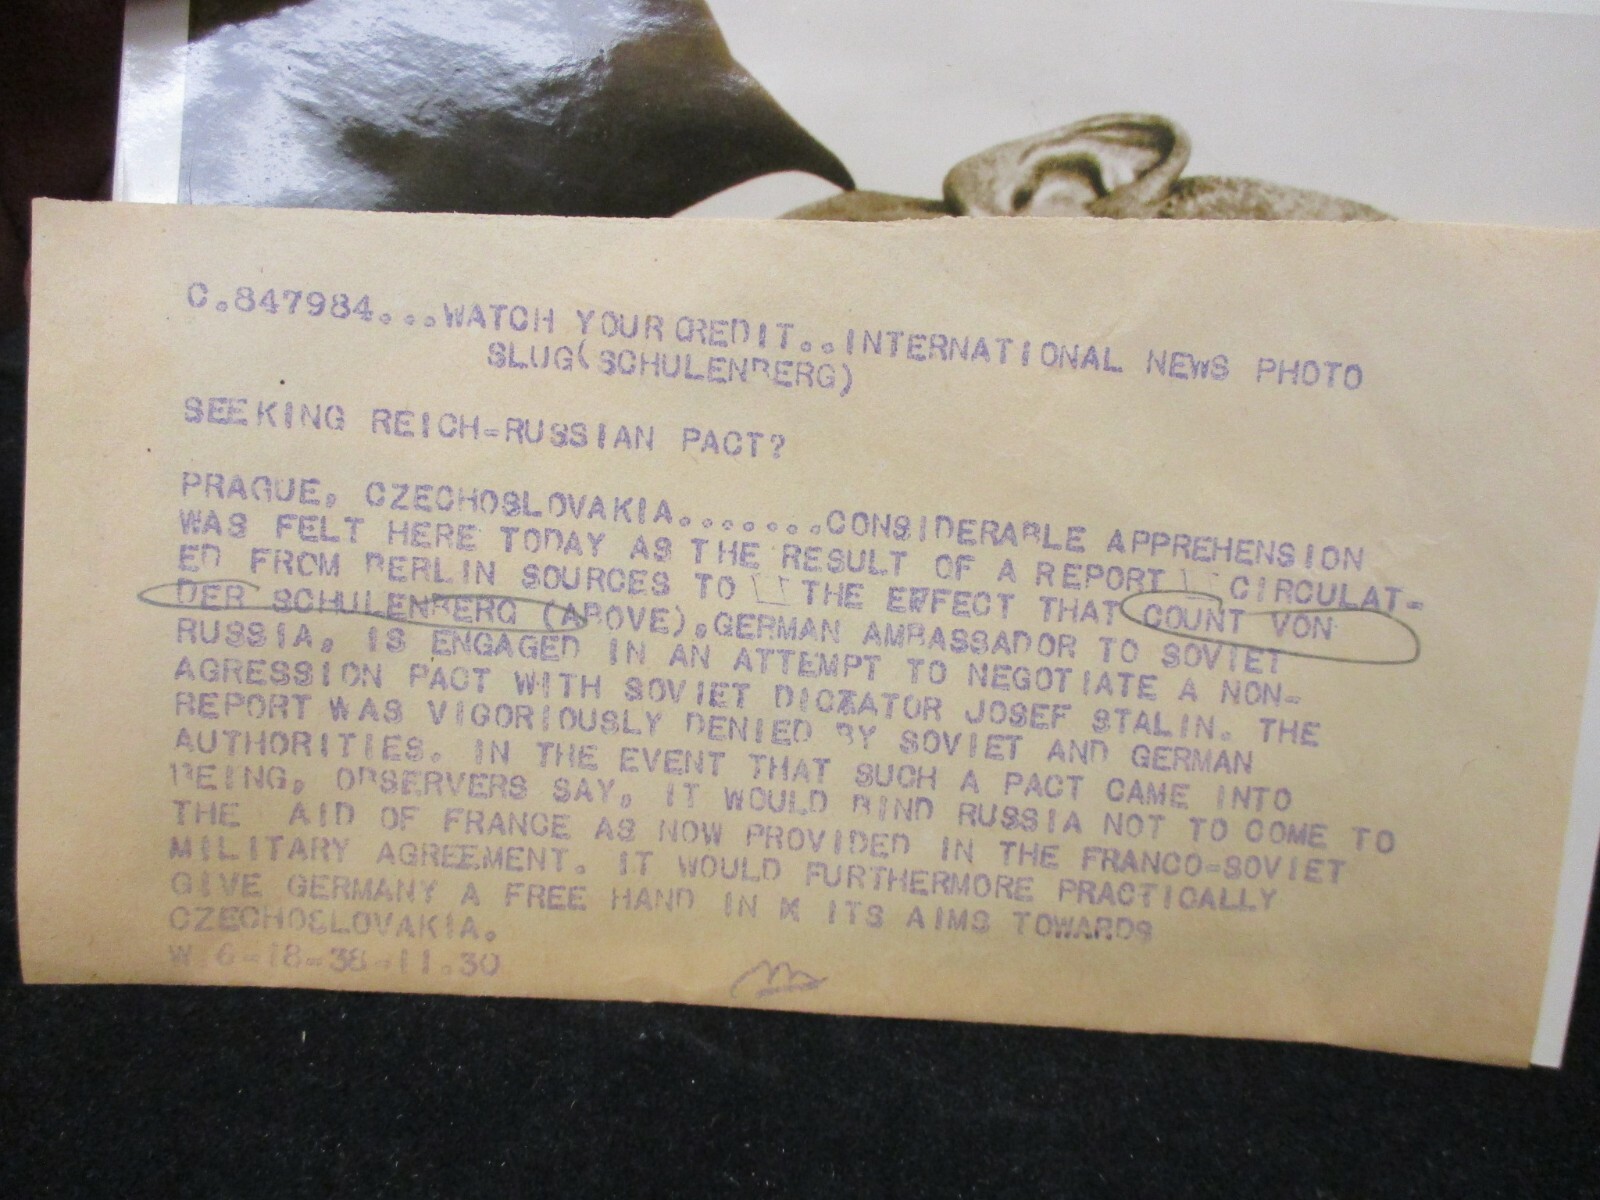 C.847984...WATCH YOUR CREDIT..INTERNATIONAL NEWS PHOTO
SLUG(SCHULENBERG)
SEEKING REICH=RUSSIAN PACT?
PRAGUE, CZECHOSLOVAKIA.......CONSIDERABLE APPREHENSION
WAS FELT HERE TODAY AS THE RESULT OF A REPORT CIRCULAT-
ED FROM BERLIN SOURCES TO THE EFFECT THAT COUNT VON
DER SCHULENBERG (ABOVE),GERMAN AMBASSADOR TO SOVIET
RUSSIA, IS ENGAGED IN AN ATTEMPT TO NEGOTIATE A NON-
AGRESSION PACT WITH SOVIET DICTATOR JOSEF STALIN. THE
REPORT WAS VIGORIOUSLY DENIED BY SOVIET AND GERMAN
AUTHORITIES. IN THE EVENT THAT SUCH A PACT CAME INTO
BEING, OBSERVERS SAY, IT WOULD BIND RUSSIA NOT TO COME TO
THE AID OF FRANCE AS NOW PROVIDED IN THE FRANCO=SOVIET
MILITARY AGREEMENT. IT WOULD FURTHERMORE PRACTICALLY
GIVE GERMANY A FREE HAND IN X ITS AIMS TOWARDS
CZECHOSLOVAKIA.
W 6-18-38-11.30